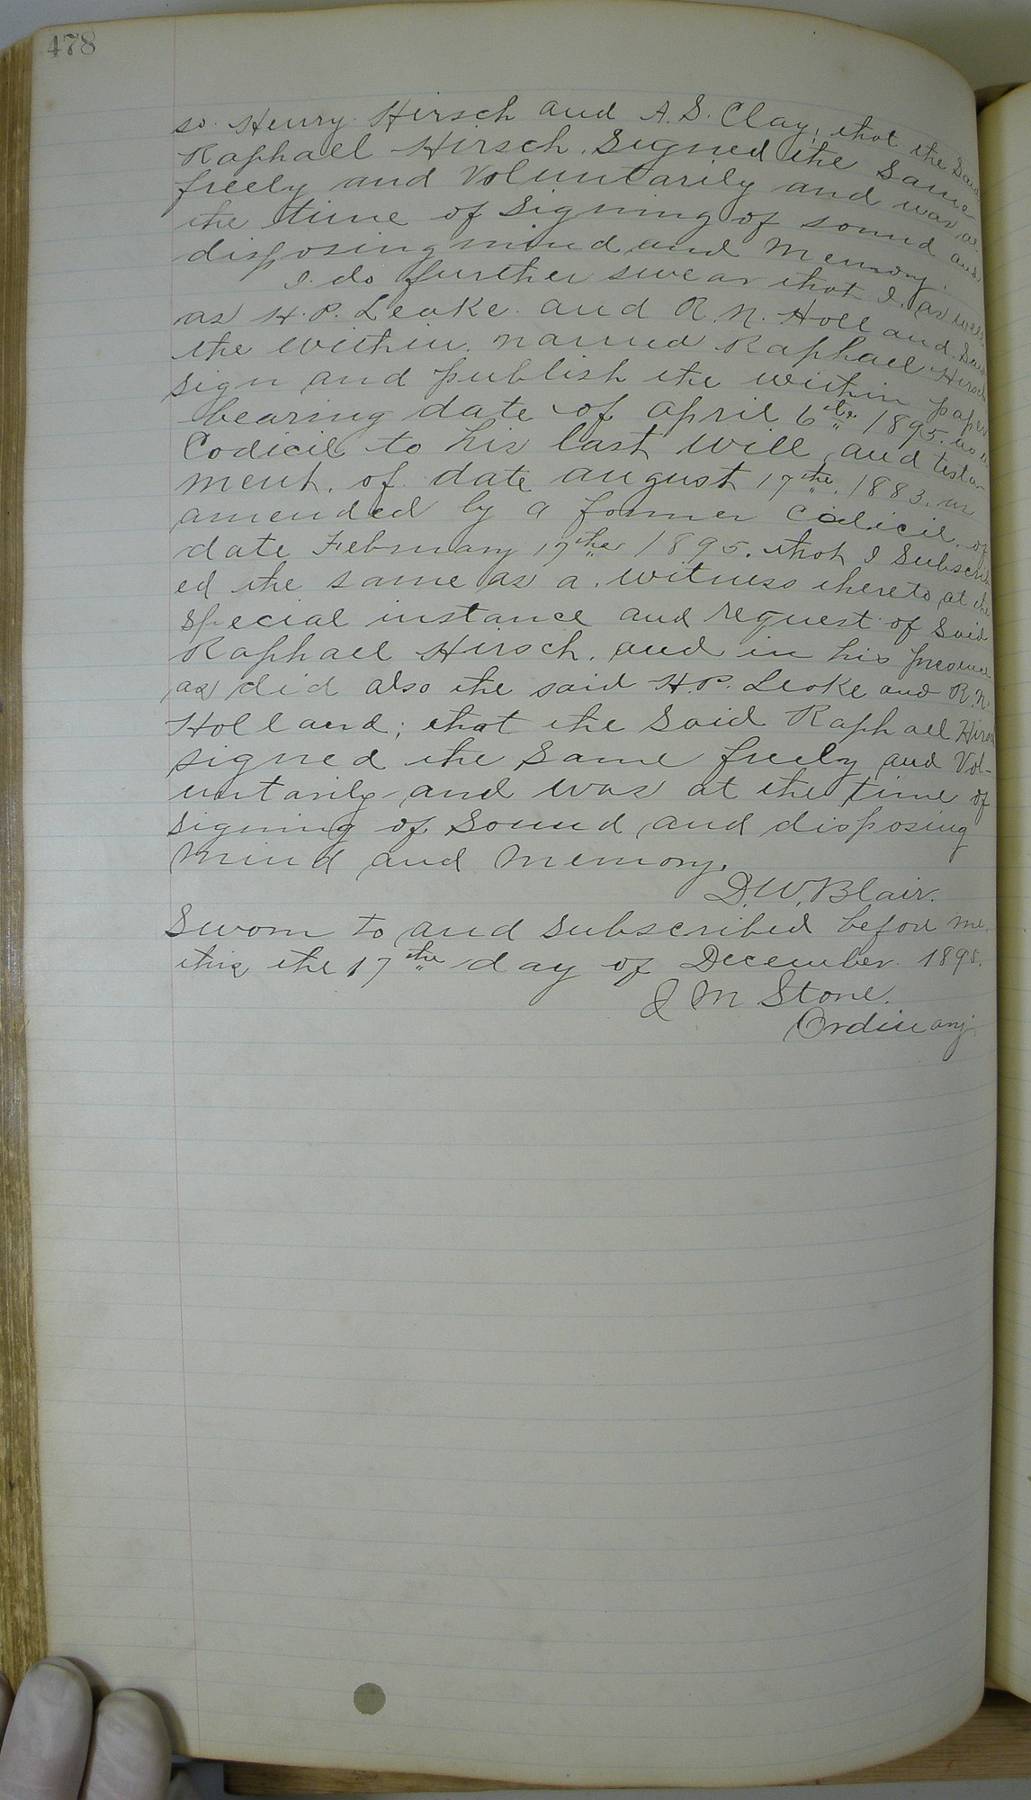 478
so Henry Hirsch and A. S. Clay; that the Said
Raphael Hirsch. Signed the Same
freely and Voluntarily and was at
the time of signing of sound and
disposing mind and Memory.
I do further swear that I. as well
as H. P. Leake and R. N. Holland. Saw
the within named Raphael Hirsch
sign and publish the within paper
bearing date of April 6th 1895. as a
Codicil to his last will and testa-
ment. of date august 17th. 1883.
amended by a former Codicil of
date February 17th 1895. that I Subscrib
ed the same as a witness thereto at the
special instance and request of Said
Raphael Hirsch. and in his presence
as did also the said H. P. Leake and R. N.
Holland; that the Said Raphael Hirsch
signed the Same freely and Vol-
untarily and was at the time of
signing of Sound and disposing
mind and Memory.
D. W. Blair.
Sworn to and subscribed before me
this the 17th day of December 1895.
J M Stone.
Ordinary